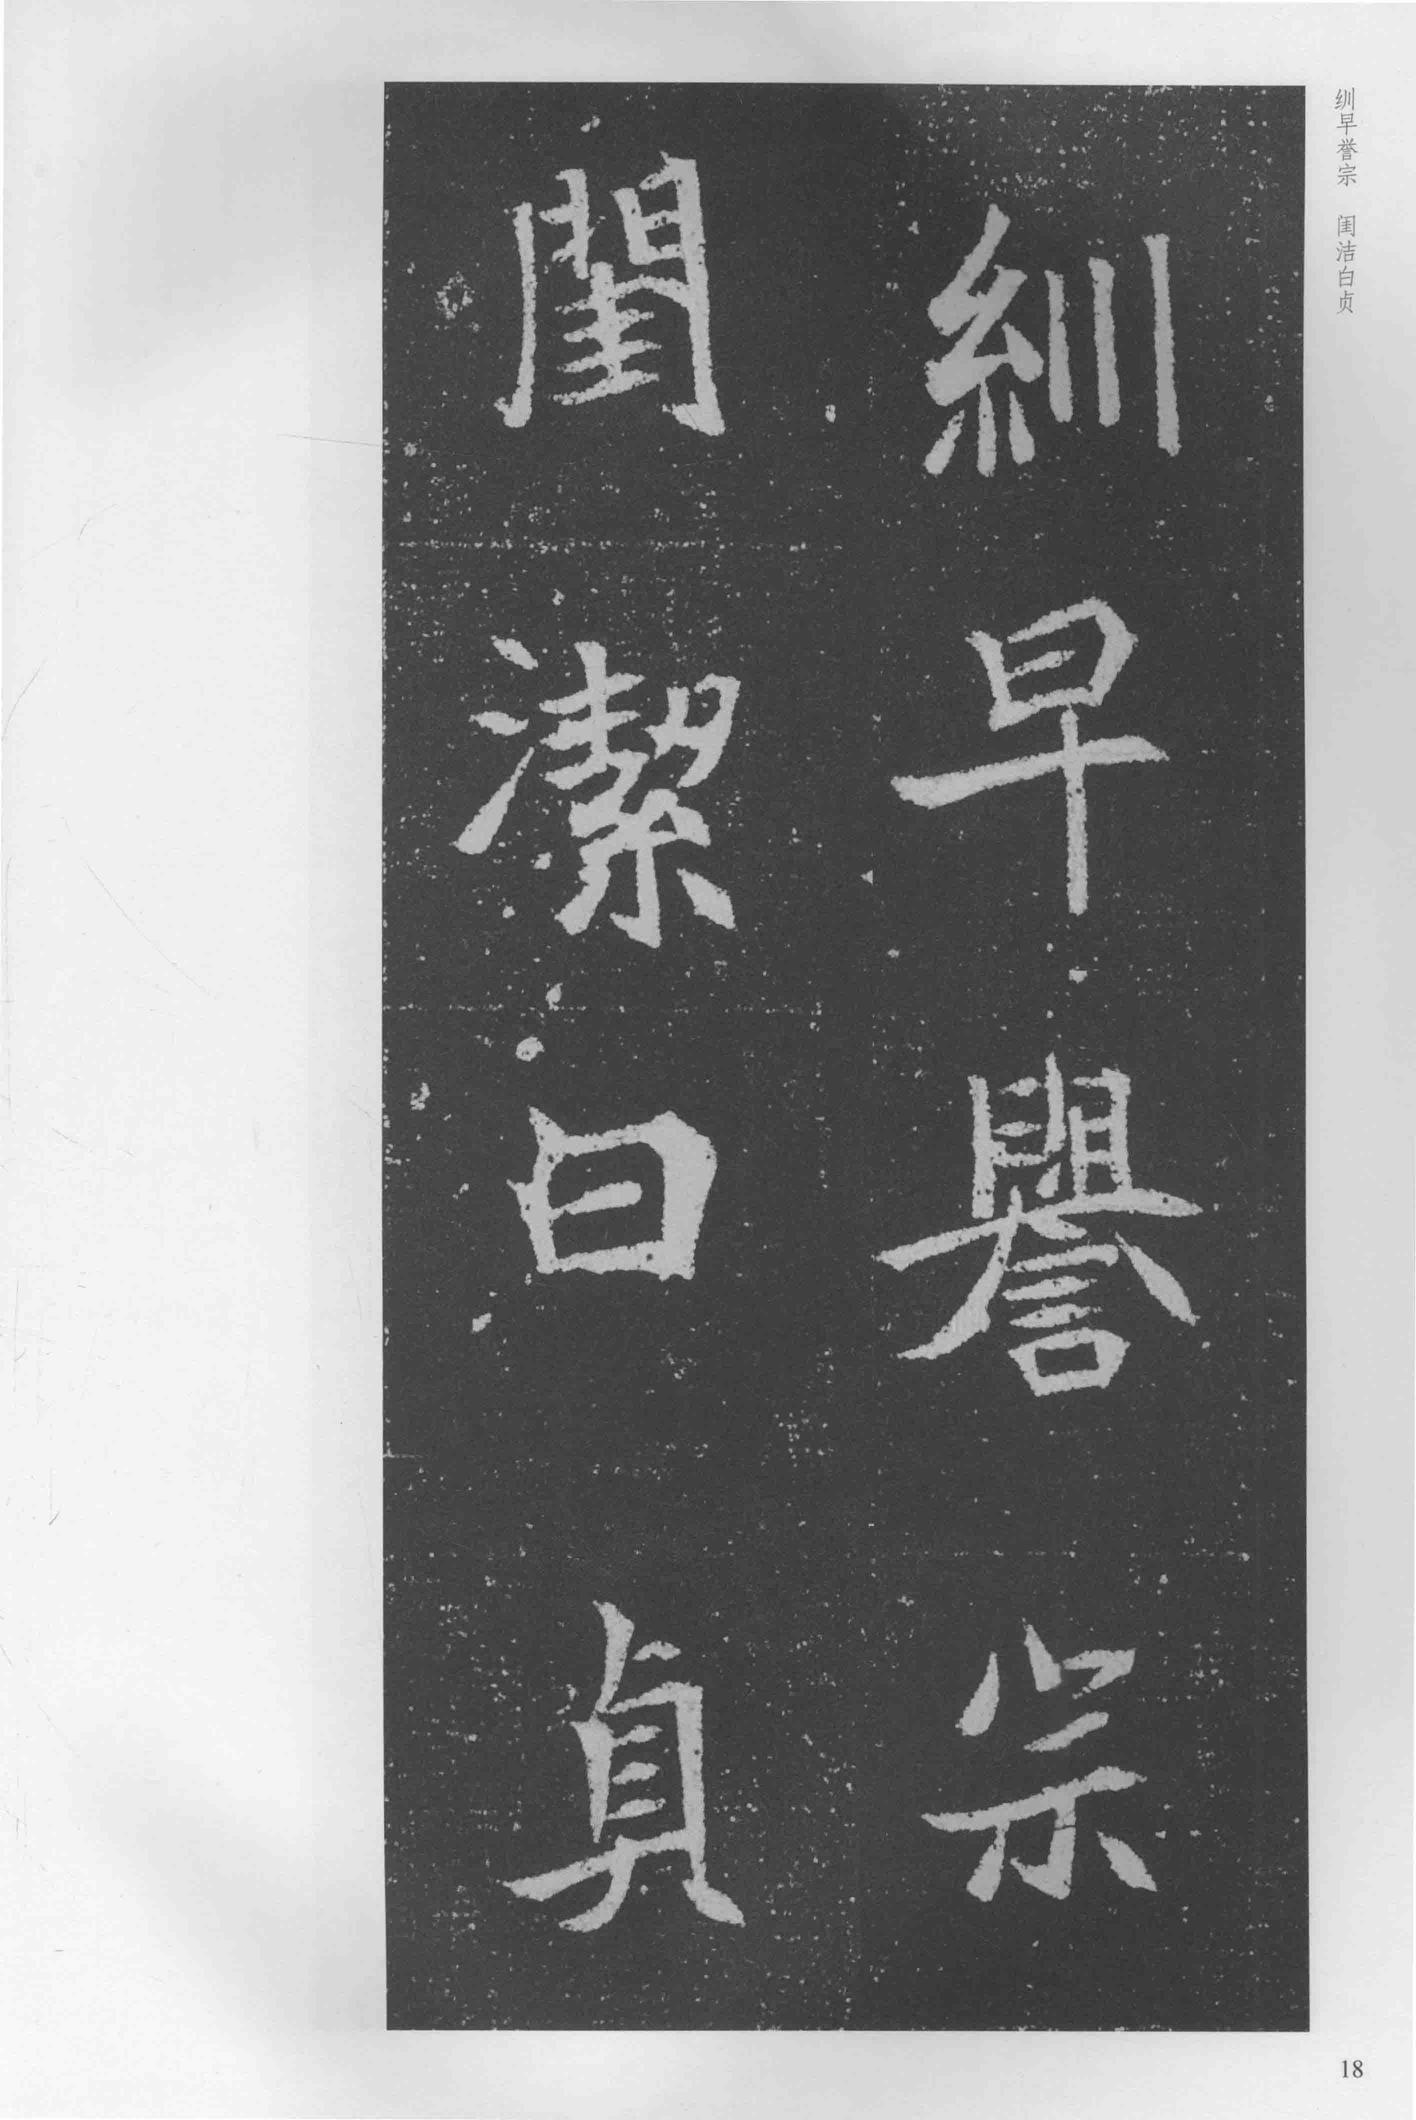 紃早譽宗
閨潔曰貞
紃早誉宗 闺洁白贞
18